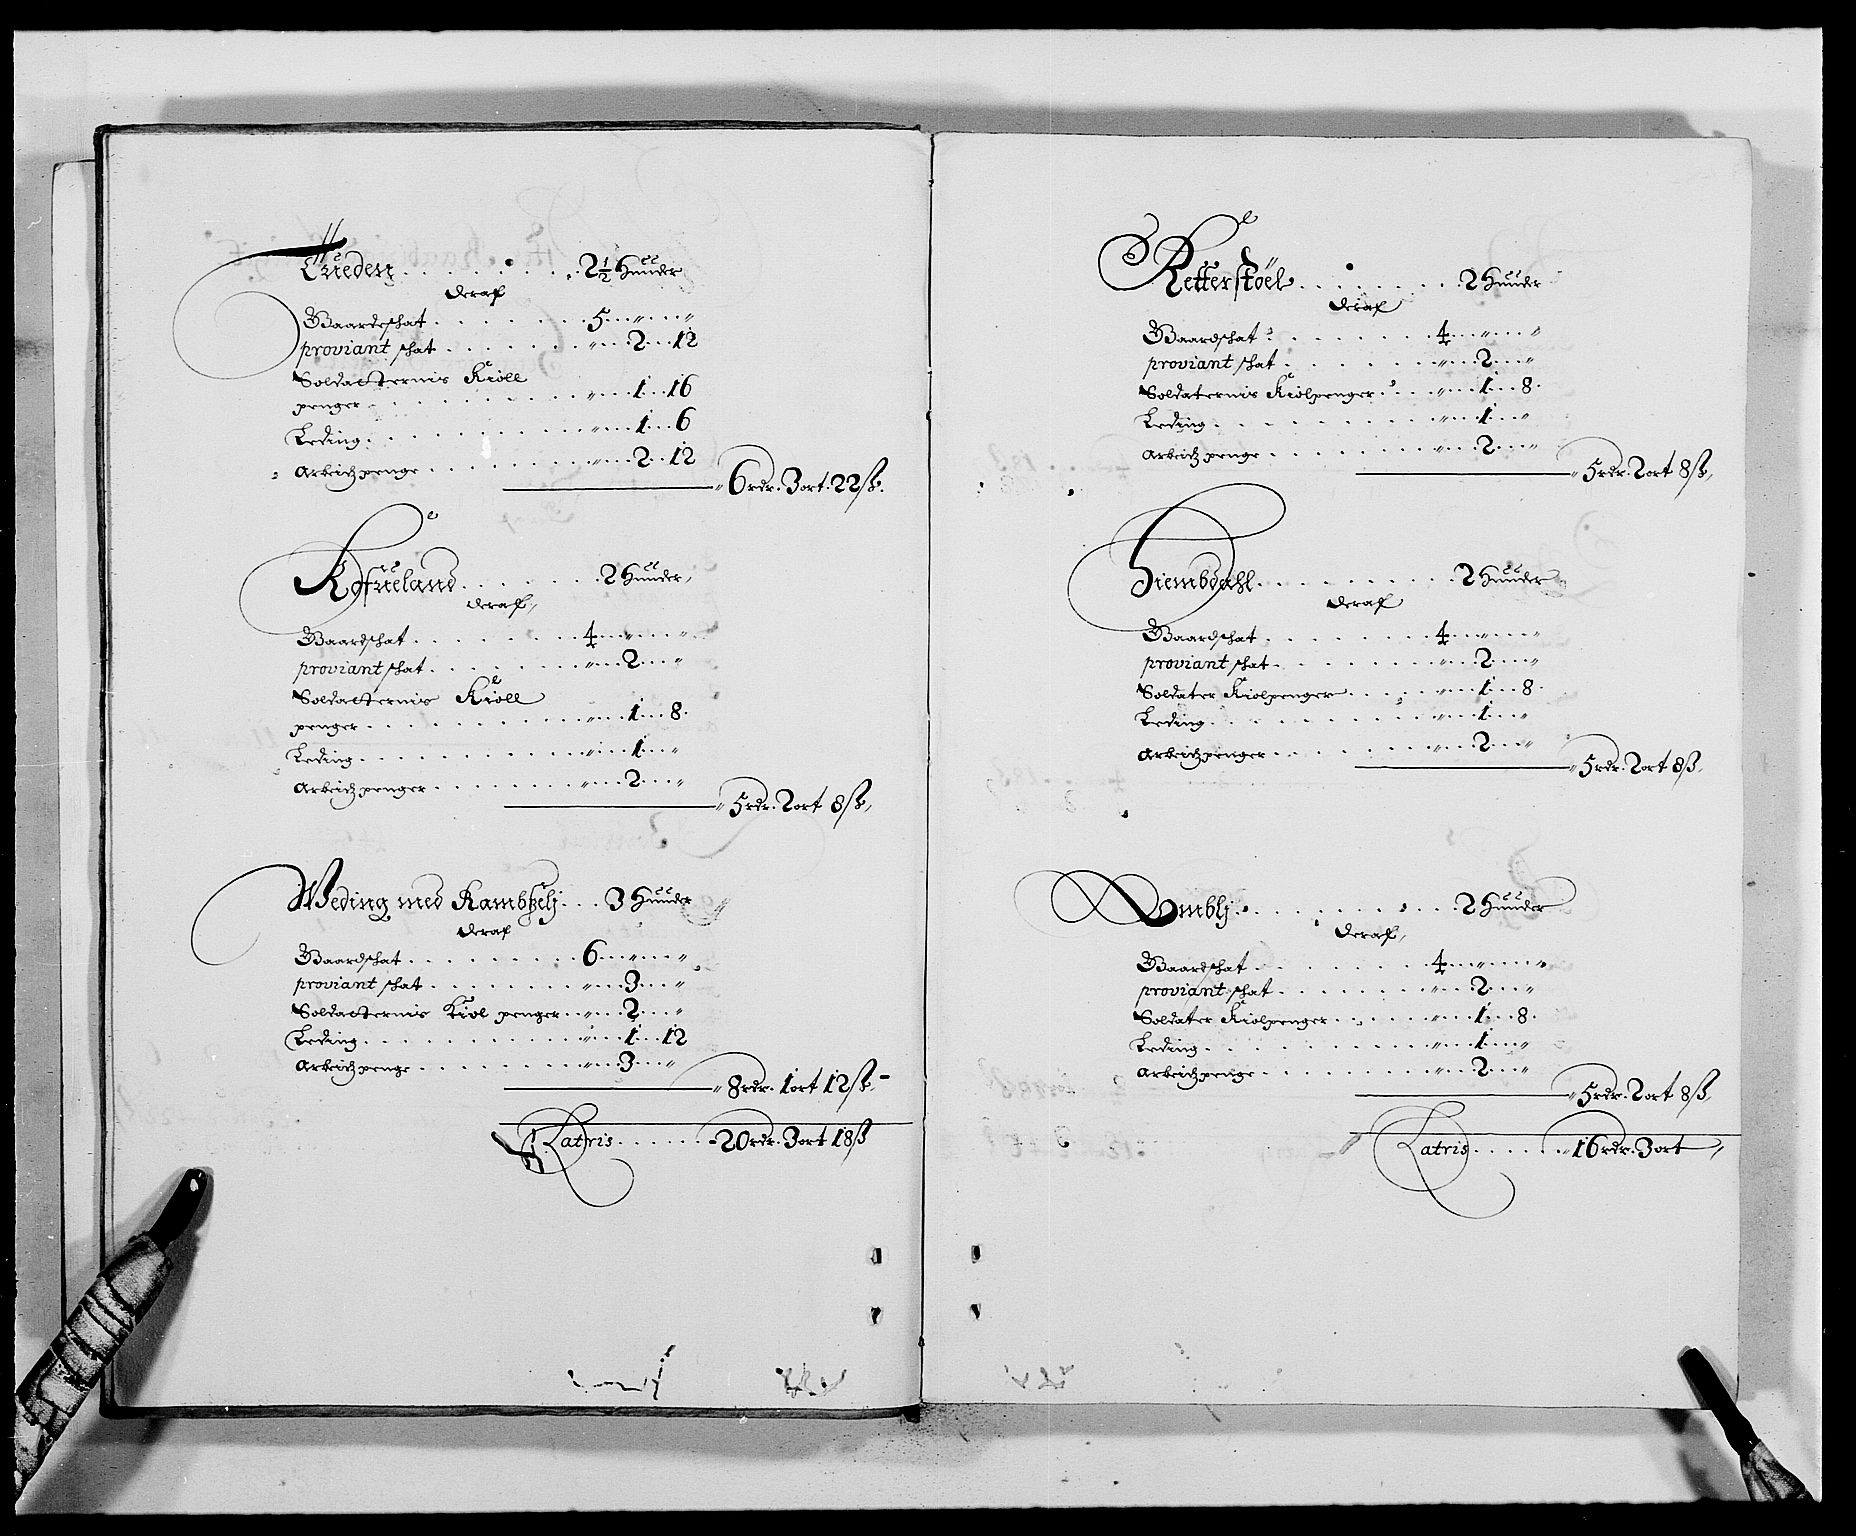 . . . . . . . . 2½ Huuder
deraf
Gaardeschat . . . . . . 5 . . " . . "
proviant schat . . . . . . " . . 2 . . 12
Soldatternis Kiöll
penger . . . . . . . . " . . 1 . . 16
Leding . . . . . . . . " . . 1 . . 6
Arbeidtz penge . . . . . . . " . . 2 . . 12
6 rdr. 3 ort. 22 ß.
Kofrueland . . . . . . 2 Huuder
deraf
Gaardschat . . . . . . 4 . . " . . "
proviant schat . . . . . . " . . 2 . . "
Soldatternis Kiöll
penger . . . . . . . . " . . 1 . . 8
Leding . . . . . . . . " . . 1 . . "
Arbeidtz penger . . . . . . " . . 2 . . "
5 rdr. 2 ort 8 ß
Weding med Kambselj . . . 3 Huuder
deraf
Gaardschat . . . . . . . 6 . . " . . "
proviant schat . . . . . . " . . 3 . . "
Soldatternis Kiöl penger . . " . . 2 . . "
Leding . . . . . . . . " . . 1 . . 12
Arbeidtz penge . . . . . . . " . . 3 . . "
8 rdr. 1 ort 12 ß
Latris . . . . . . 20 rdr. 3 ort 18 ß
Retterstöel . . . . . . . 2 Huuder
deraf
Gaardschat . . . . . . 4 . . " . . "
proviant schat . . . . . . " . . 2 . . "
Soldaternis Kiölpenger . . . " . . 1 . . 8
Leding . . . . . . . . " . . 1 . . "
Arbeidtz penge . . . . . . . " . . 2 . . "
5 rdr. 2 ort 8 ß
Hiembdahl . . . . . . . . 2 Huuder
deraf
Gaardschat . . . . . . 4 . . " . . "
proviant schat . . . . . . " . . 2 . . "
Soldater Kiölpenger . . . . " . . 1 . . 8
Leding . . . . . . . . " . . 1 . . "
Arbeidtz penger . . . . . . " . . 2 . . "
5 rdr. 2 ort 8 ß
Omblj . . . . . . . . 2 Huuder
deraf
Gaardschat . . . . . . 4 . . " . . "
proviant schat . . . . . . " . . 2 . . "
Soldater Kiölpenger . . . . " . . 1 . . 8
Leding . . . . . . . . " . . 1 . . "
Arbeidtz penge . . . . . . . " . . 2 . . "
5 rdr. 2 ort 8 ß
Latris . . . . . 16 rdr. 3 ort